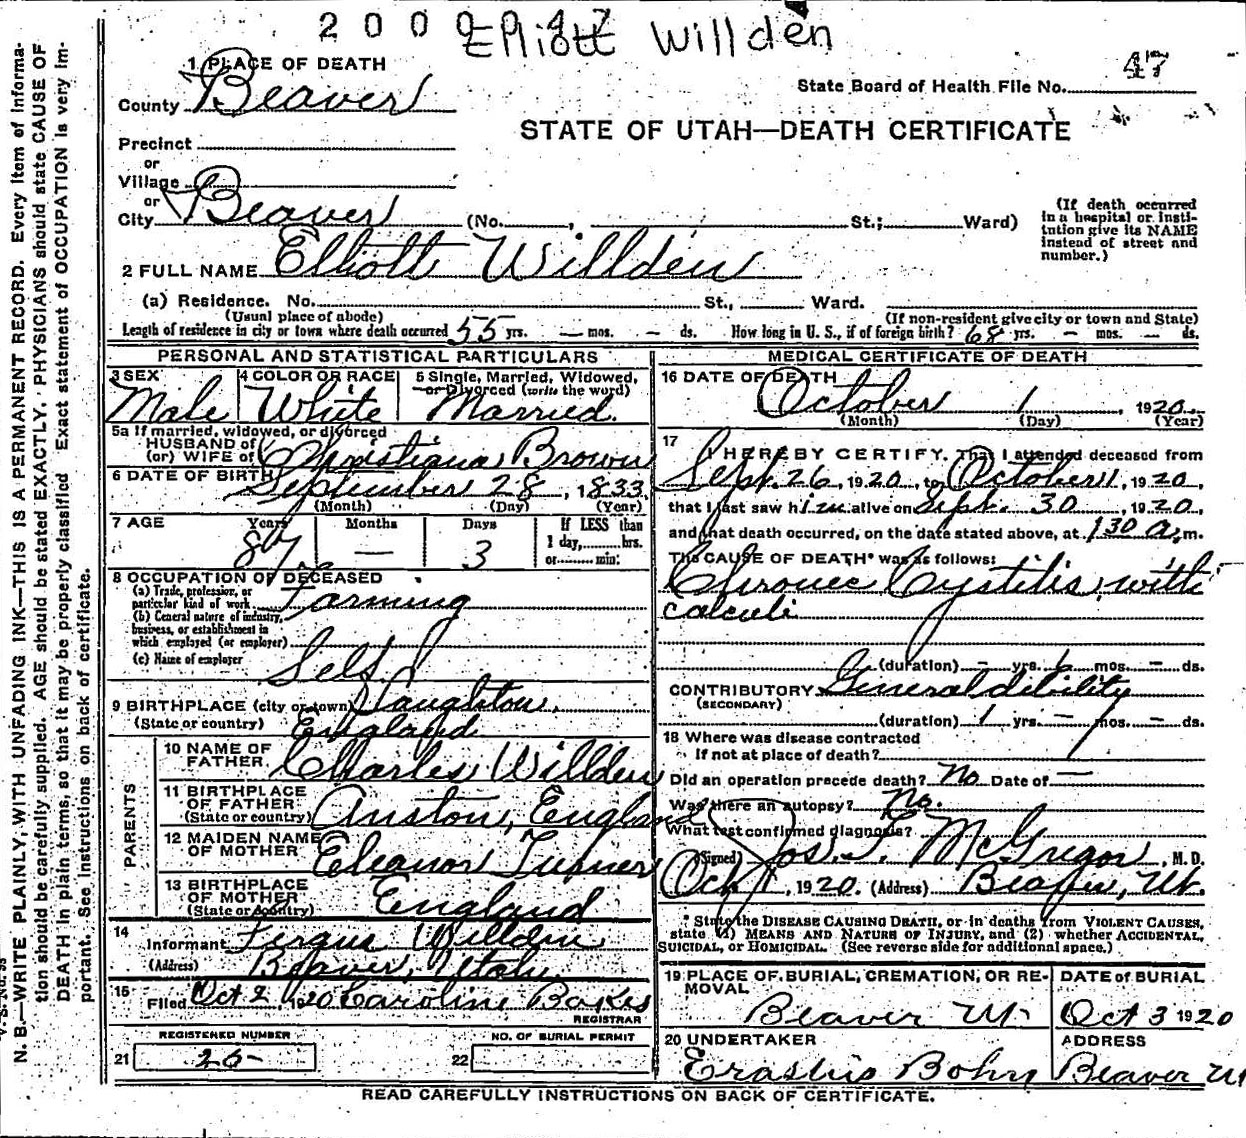 Elliott Willden
1 PLACE OF DEATH
County Beaver
State Board of Health File No. 47
STATE OF UTAH—DEATH CERTIFICATE
Precinct
or
Village
or
City Beaver (No. , St.; Ward)
(If death occurred in a hospital or institution give its NAME instead of street and number.)
2 FULL NAME Elliott Willden
(a) Residence. No. St., Ward.
(Usual place of abode) (If non-resident give city or town and State)
Length of residence in city or town where death occurred 55 yrs. — mos. — ds. How long in U. S., if of foreign birth? 68 yrs. — mos. — ds.
PERSONAL AND STATISTICAL PARTICULARS
3 SEX Male
4 COLOR OR RACE White
5 Single, Married, Widowed, or Divorced (write the word) Married.
5a If married, widowed, or divorced
HUSBAND of
(or) WIFE of Christiana Brown
6 DATE OF BIRTH September 28, 1833
(Month) (Day) (Year)
7 AGE Years 87 Months — Days 3
If LESS than 1 day, hrs. or min.
8 OCCUPATION OF DECEASED
(a) Trade, profession, or particular kind of work Farming
(b) General nature of industry, business, or establishment in which employed (or employer)
(c) Name of employer Self
9 BIRTHPLACE (city or town) Laughton,
(State or country) England
PARENTS
10 NAME OF FATHER Charles Willden
11 BIRTHPLACE OF FATHER (State or country) Anston, England
12 MAIDEN NAME OF MOTHER Eleanor Turner
13 BIRTHPLACE OF MOTHER (State or country) England
14 Informant Fergus Willden
(Address) Beaver, Utah,
15 Filed Oct 2 1920 Caroline Bakes
REGISTRAR
REGISTERED NUMBER
21 26
NO. OF BURIAL PERMIT
22
MEDICAL CERTIFICATE OF DEATH
16 DATE OF DEATH October 1, 1920
(Month) (Day) (Year)
17 I HEREBY CERTIFY, That I attended deceased from
Sept. 26, 1920, to October 1, 1920,
that I last saw him alive on Sept. 30, 1920,
and that death occurred, on the date stated above, at 1 30 a. m.
The CAUSE OF DEATH* was as follows:
Chronic Cystitis, with
calculi
(duration) — yrs. 6 mos. — ds.
CONTRIBUTORY General dibility
(SECONDARY)
(duration) 1 yrs. — mos. — ds.
18 Where was disease contracted
If not at place of death?
Did an operation precede death? No Date of —
Was there an autopsy? No.
What test confirmed diagnosis?
(Signed) Jos. F. McGregor, M. D.
Oct 1, 1920. (Address) Beaver, Ut.
* State the DISEASE CAUSING DEATH, or in deaths from VIOLENT CAUSES, state (1) MEANS AND NATURE OF INJURY, and (2) whether ACCIDENTAL, SUICIDAL, or HOMICIDAL. (See reverse side for additional space.)
19 PLACE OF BURIAL, CREMATION, OR REMOVAL Beaver Ut.
DATE OF BURIAL Oct 3 1920
20 UNDERTAKER Erastus Bohn
ADDRESS Beaver Ut
READ CAREFULLY INSTRUCTIONS ON BACK OF CERTIFICATE.
N. B.—WRITE PLAINLY, WITH UNFADING INK—THIS IS A PERMANENT RECORD. Every item of information should be carefully supplied. AGE should be stated EXACTLY. PHYSICIANS should state CAUSE OF DEATH in plain terms, so that it may be properly classified. Exact statement of OCCUPATION is very important. See instructions on back of certificate.